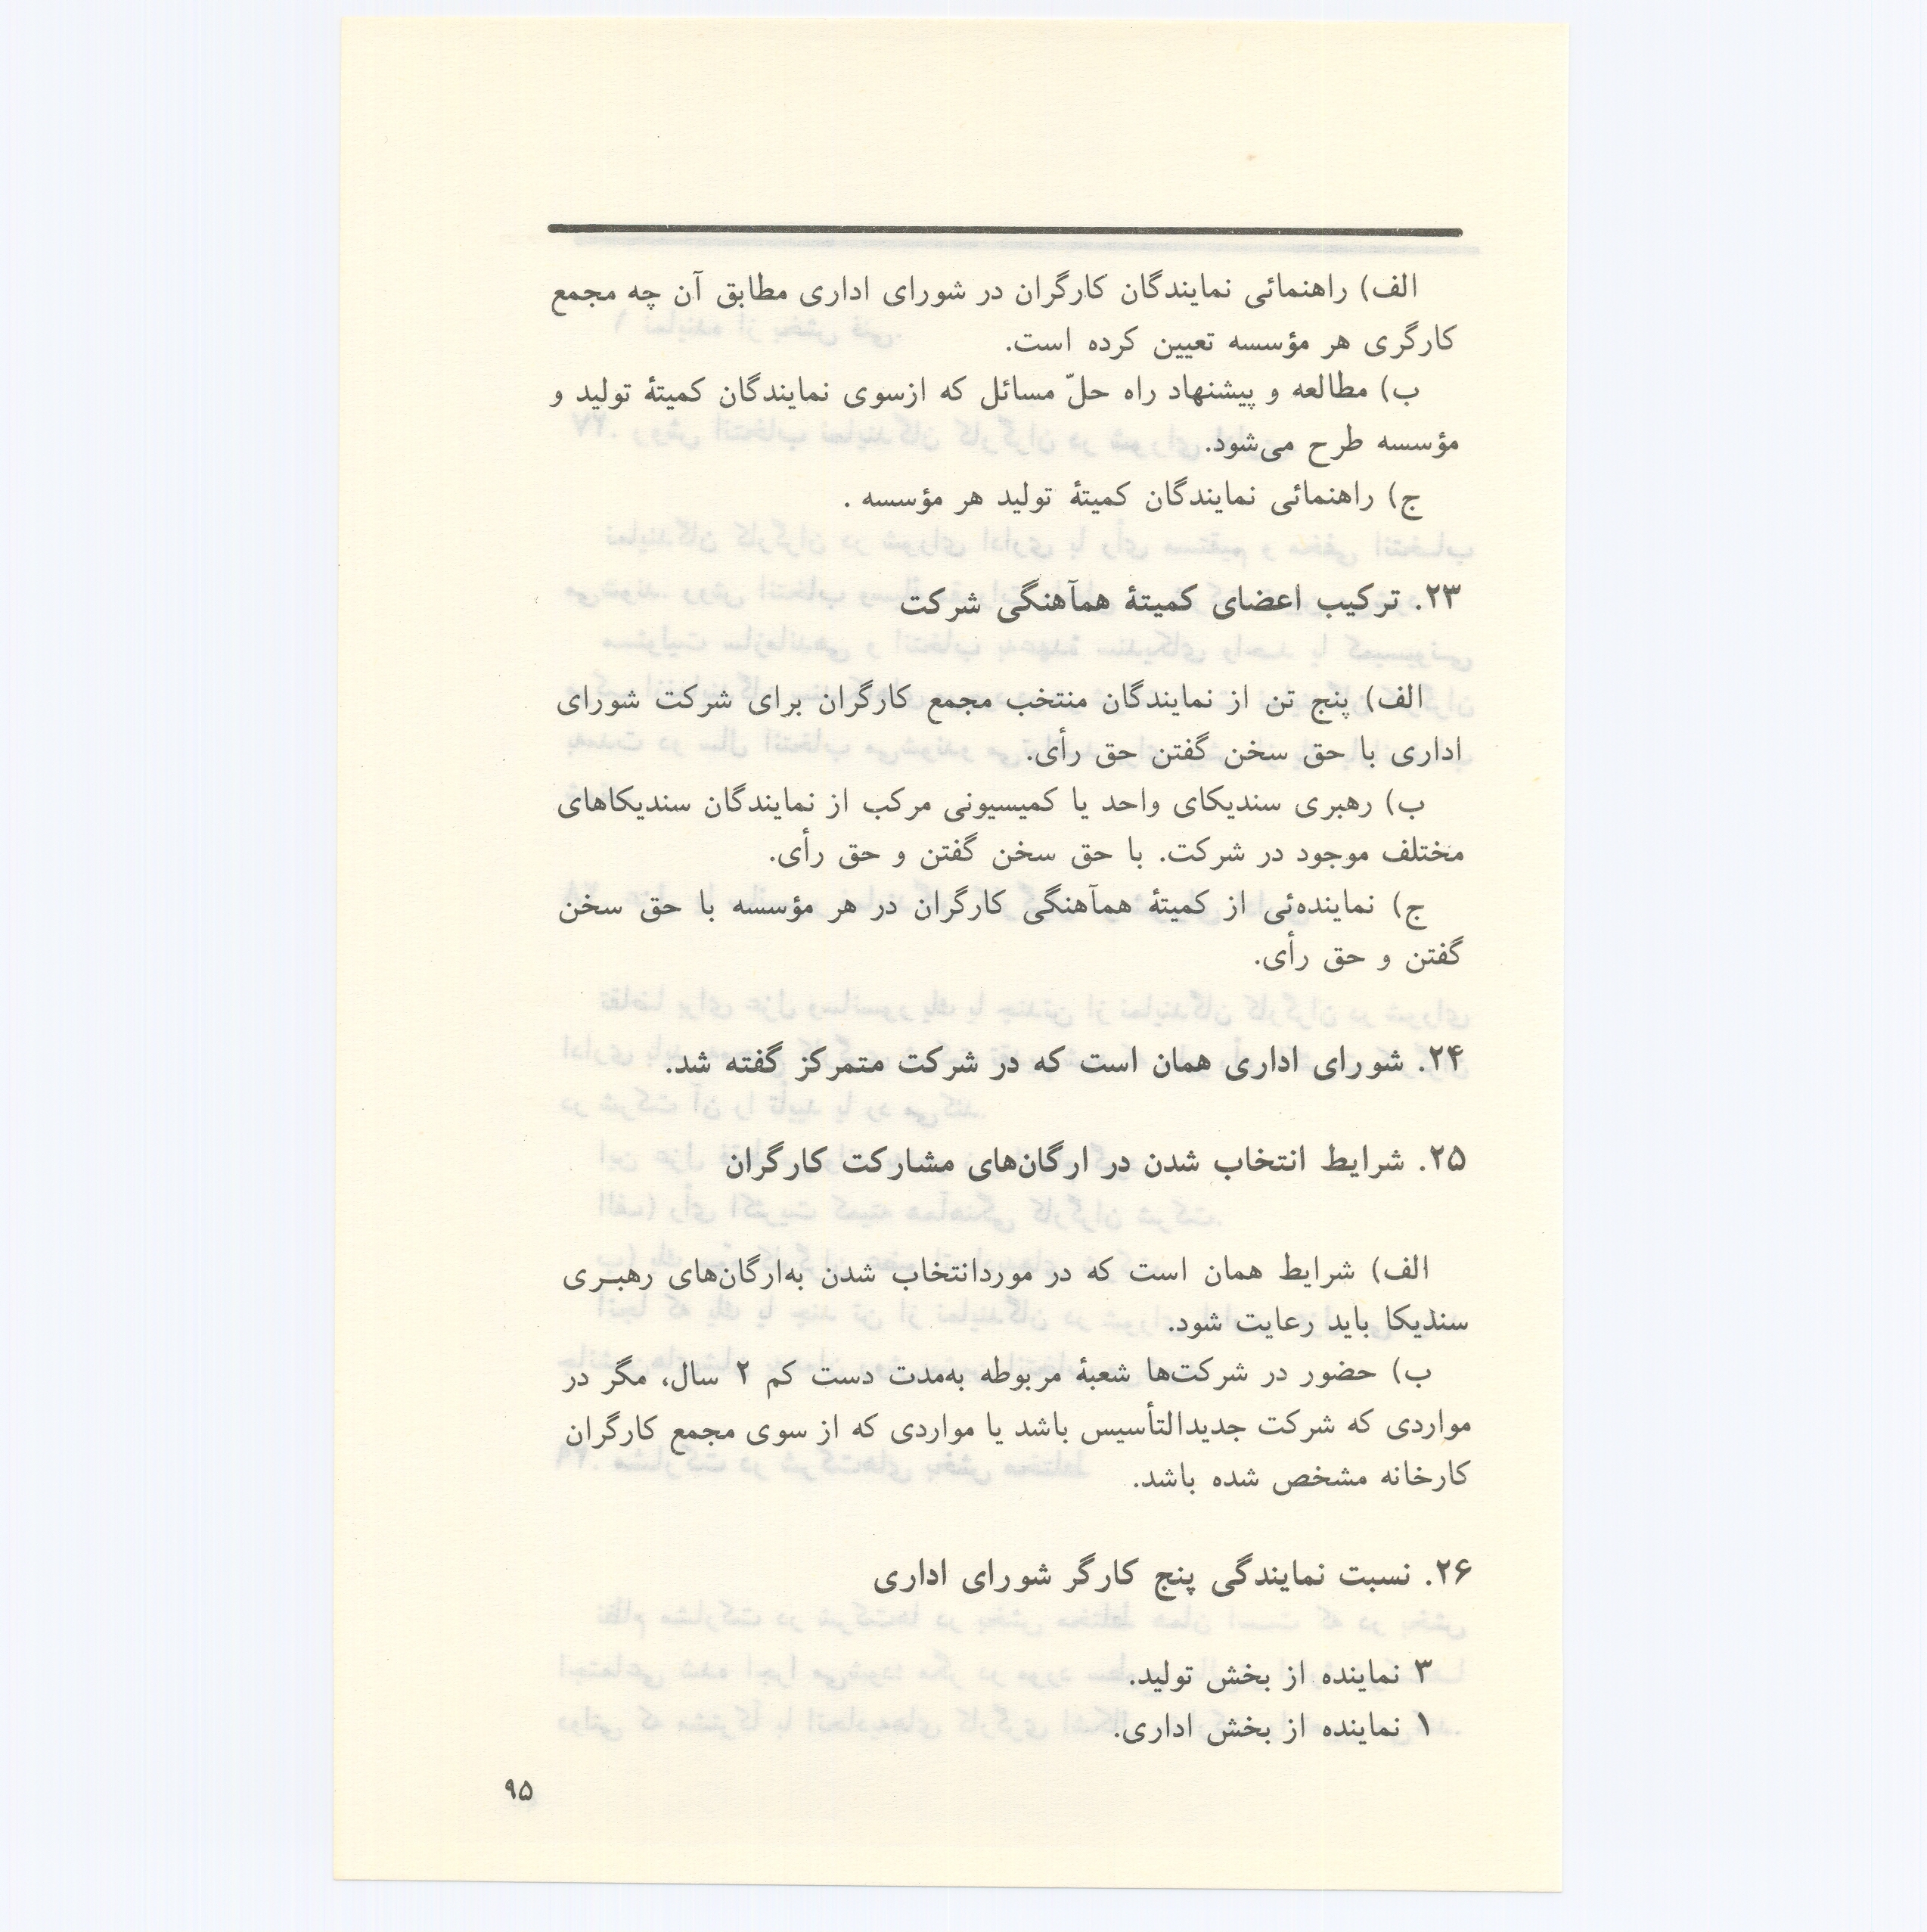 الف) راهنمائی نمایندگان کارگران در شورای اداری مطابق آن چه مجمع
کارگری هر مؤسسه تعیین کرده است.
ب) مطالعه و پیشنهاد راه حلّ مسائل که ازسوی نمایندگان کمیتهٔ تولید و
مؤسسه طرح می‌شود.
ج) راهنمائی نمایندگان کمیتهٔ تولید هر مؤسسه .
۲۳. ترکیب اعضای کمیتهٔ همآهنگی شرکت
الف) پنج تن از نمایندگان منتخب مجمع کارگران برای شرکت شورای
اداری با حق سخن گفتن حق رأی.
ب) رهبری سندیکای واحد یا کمیسیونی مرکب از نمایندگان سندیکاهای
مختلف موجود در شرکت. با حق سخن گفتن و حق رأی.
ج) نماینده‌ئی از کمیتهٔ همآهنگی کارگران در هر مؤسسه با حق سخن
گفتن و حق رأی.
۲۴. شورای اداری همان است که در شرکت متمرکز گفته شد.
۲۵. شرایط انتخاب شدن در ارگان‌های مشارکت کارگران
الف) شرایط همان است که در موردانتخاب شدن به‌ارگان‌های رهبـری
سندیکا باید رعایت شود.
ب) حضور در شرکت‌ها شعبهٔ مربوطه به‌مدت دست کم ۲ سال، مگر در
مواردی که شرکت جدیدالتأسیس باشد یا مواردی که از سوی مجمع کارگران
کارخانه مشخص شده باشد.
۲۶. نسبت نمایندگی پنج کارگر شورای اداری
۳ نماینده از بخش تولید.
۱ نماینده از بخش اداری.
۹۵